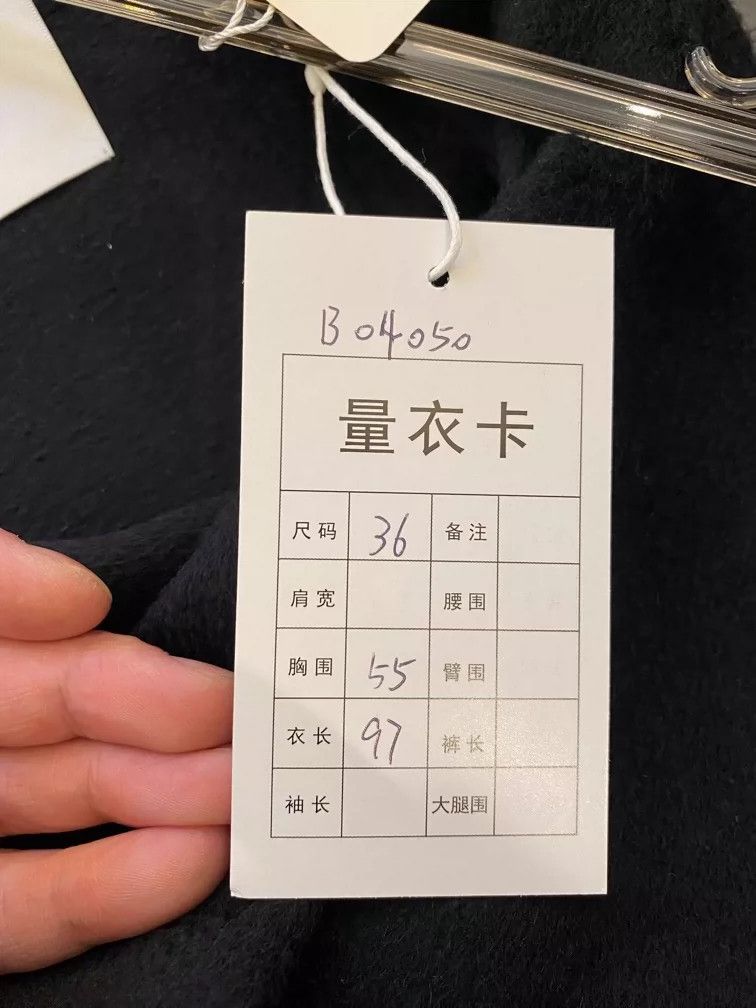 B04050
量衣卡
尺码 36 备注
肩宽 腰围
胸围 55 臂围
衣长 97 裤长
袖长 大腿围